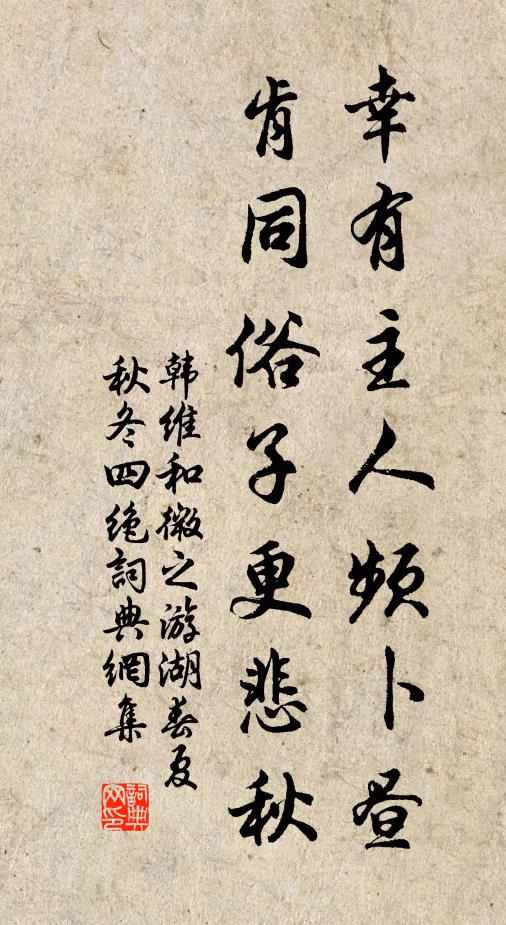 幸有主人频卜昼
肯同俗子更悲秋
韩维和微之游湖春夏
秋冬四绝詞典網集
詞典网印